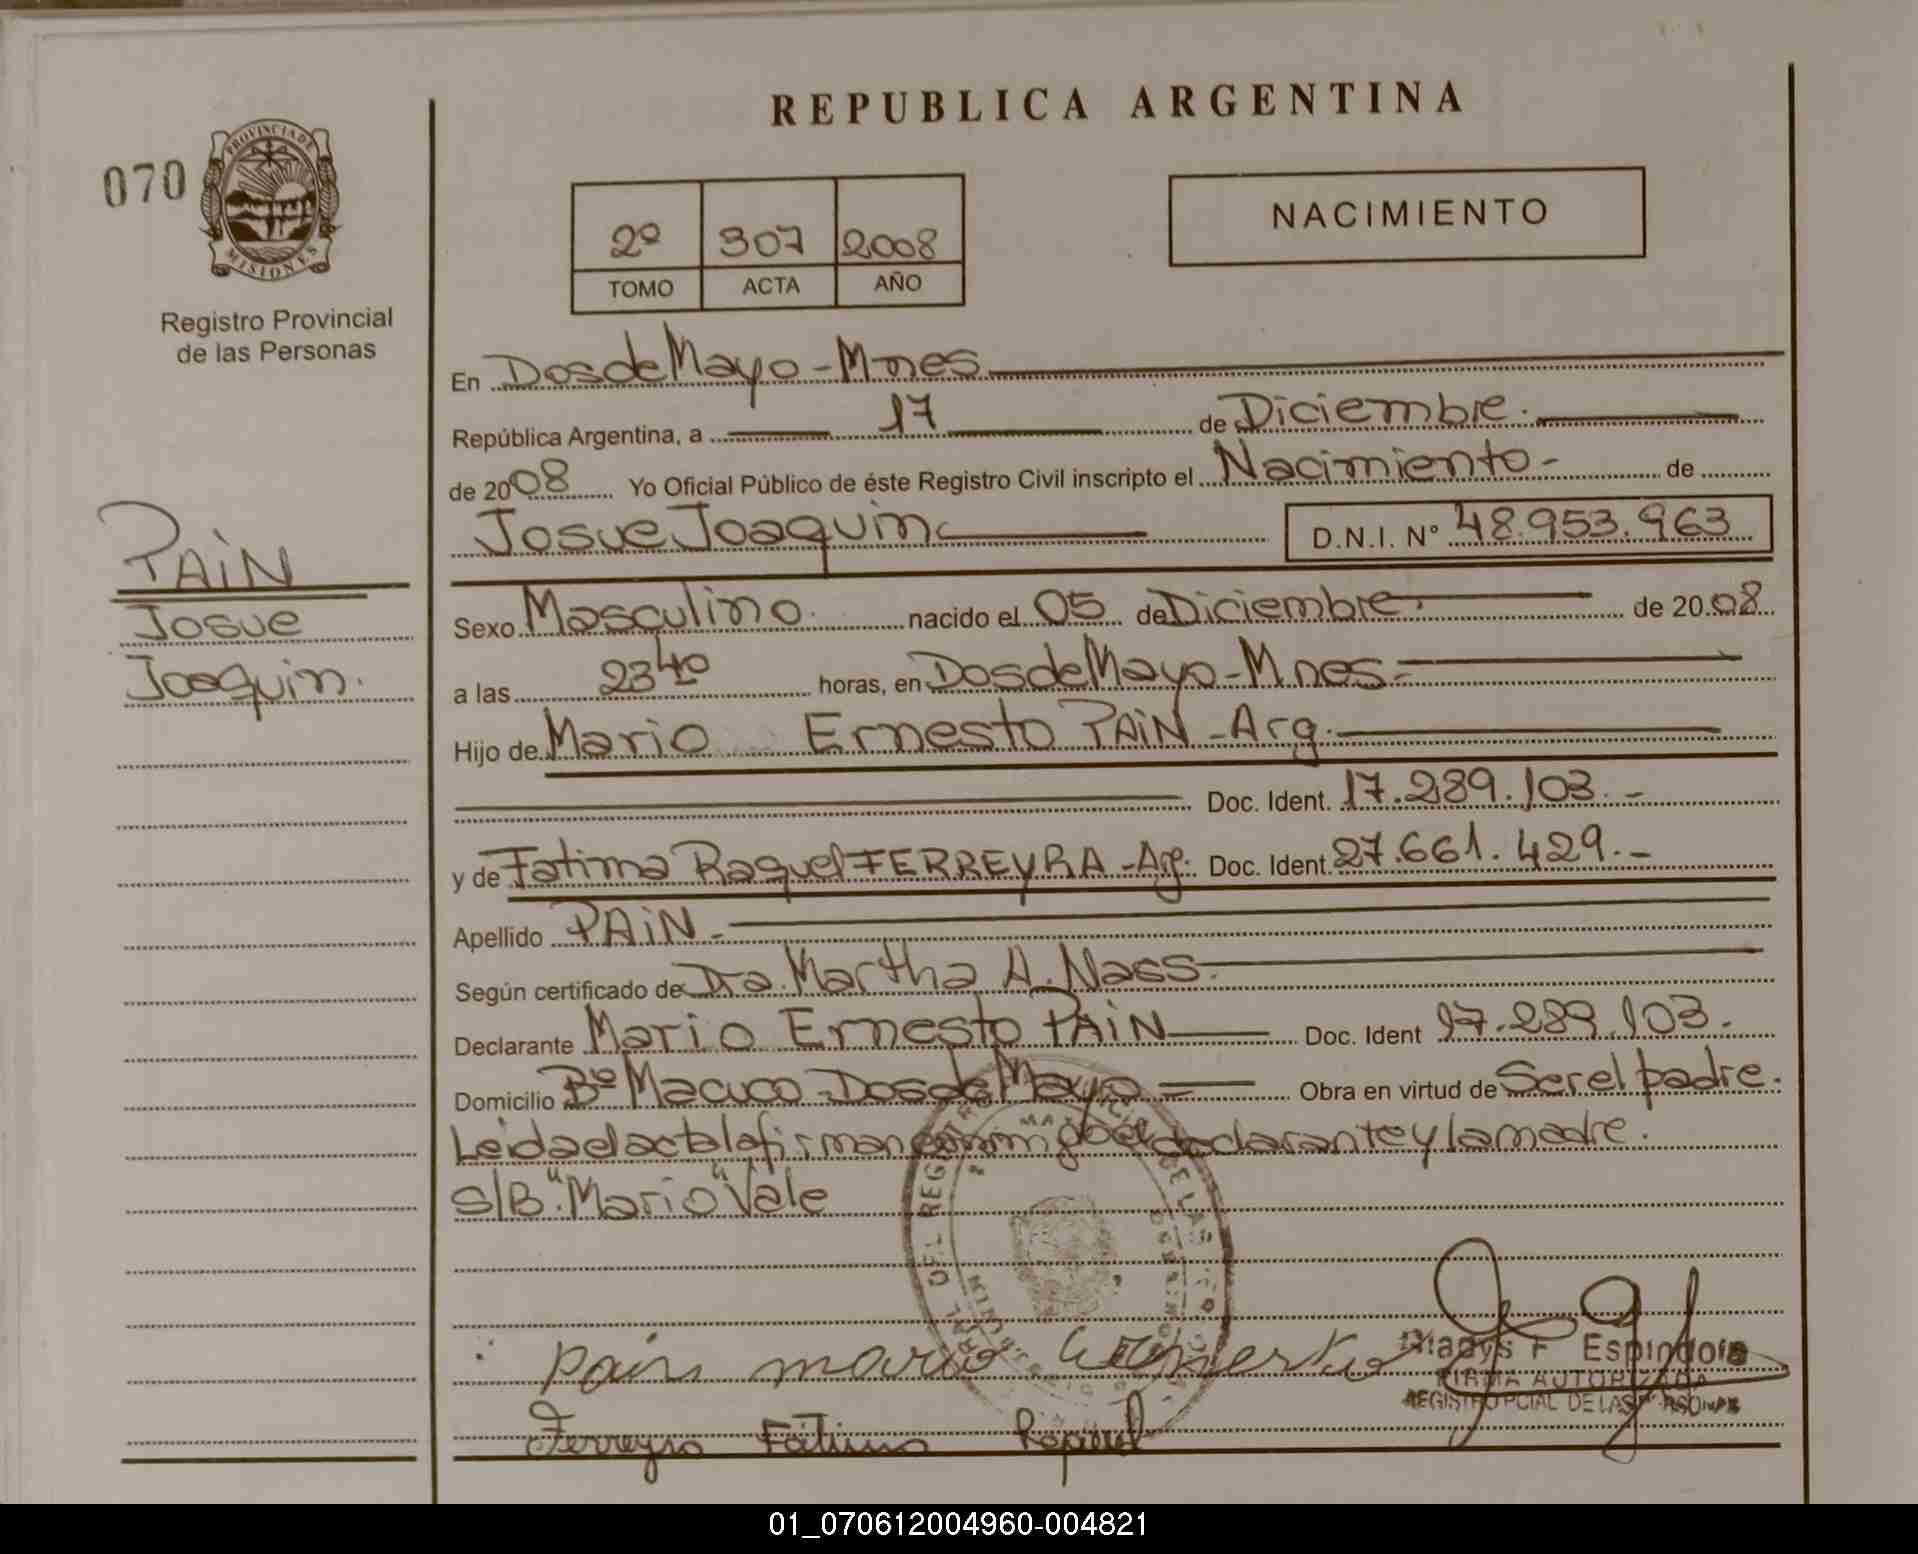 REPUBLICA ARGENTINA
070
PROVINCIA DE
MISIONES
Registro Provincial
de las Personas
2º 307 2008
TOMO ACTA AÑO
NACIMIENTO
PAIN
Josue
Joaquin.
En Dos de Mayo - Mnes
República Argentina, a 17 de Diciembre.
de 2008 Yo Oficial Público de éste Registro Civil inscripto el Nacimiento - de
Josue Joaquin D.N.I. Nº 48.953.963
Sexo Masculino. nacido el 05 de Diciembre. de 20 08
a las 23 40 horas, en Dos de Mayo - Mnes.
Hijo de Mario Ernesto PAIN - Arg.
Doc. Ident. 17.289.103.-
y de Fatima Raquel FERREYRA - Arg. Doc. Ident. 27.661.429.-
Apellido PAIN.
Según certificado de Dra. Martha A. Nass.
Declarante Mario Ernesto PAIN Doc. Ident 17.289.103.
Domicilio Bº Macuco - Dos de Mayo Obra en virtud de Ser el padre.
Leida el acta la firman conmigo el declarante y la madre.
S/B. "Mario" Vale
pain mario Ernesto
Gladys F Espindola
FIRMA AUTORIZADA
REGISTRO PCIAL DE LAS PERSONAS
Ferreyra Fátima Raquel
01_070612004960-004821